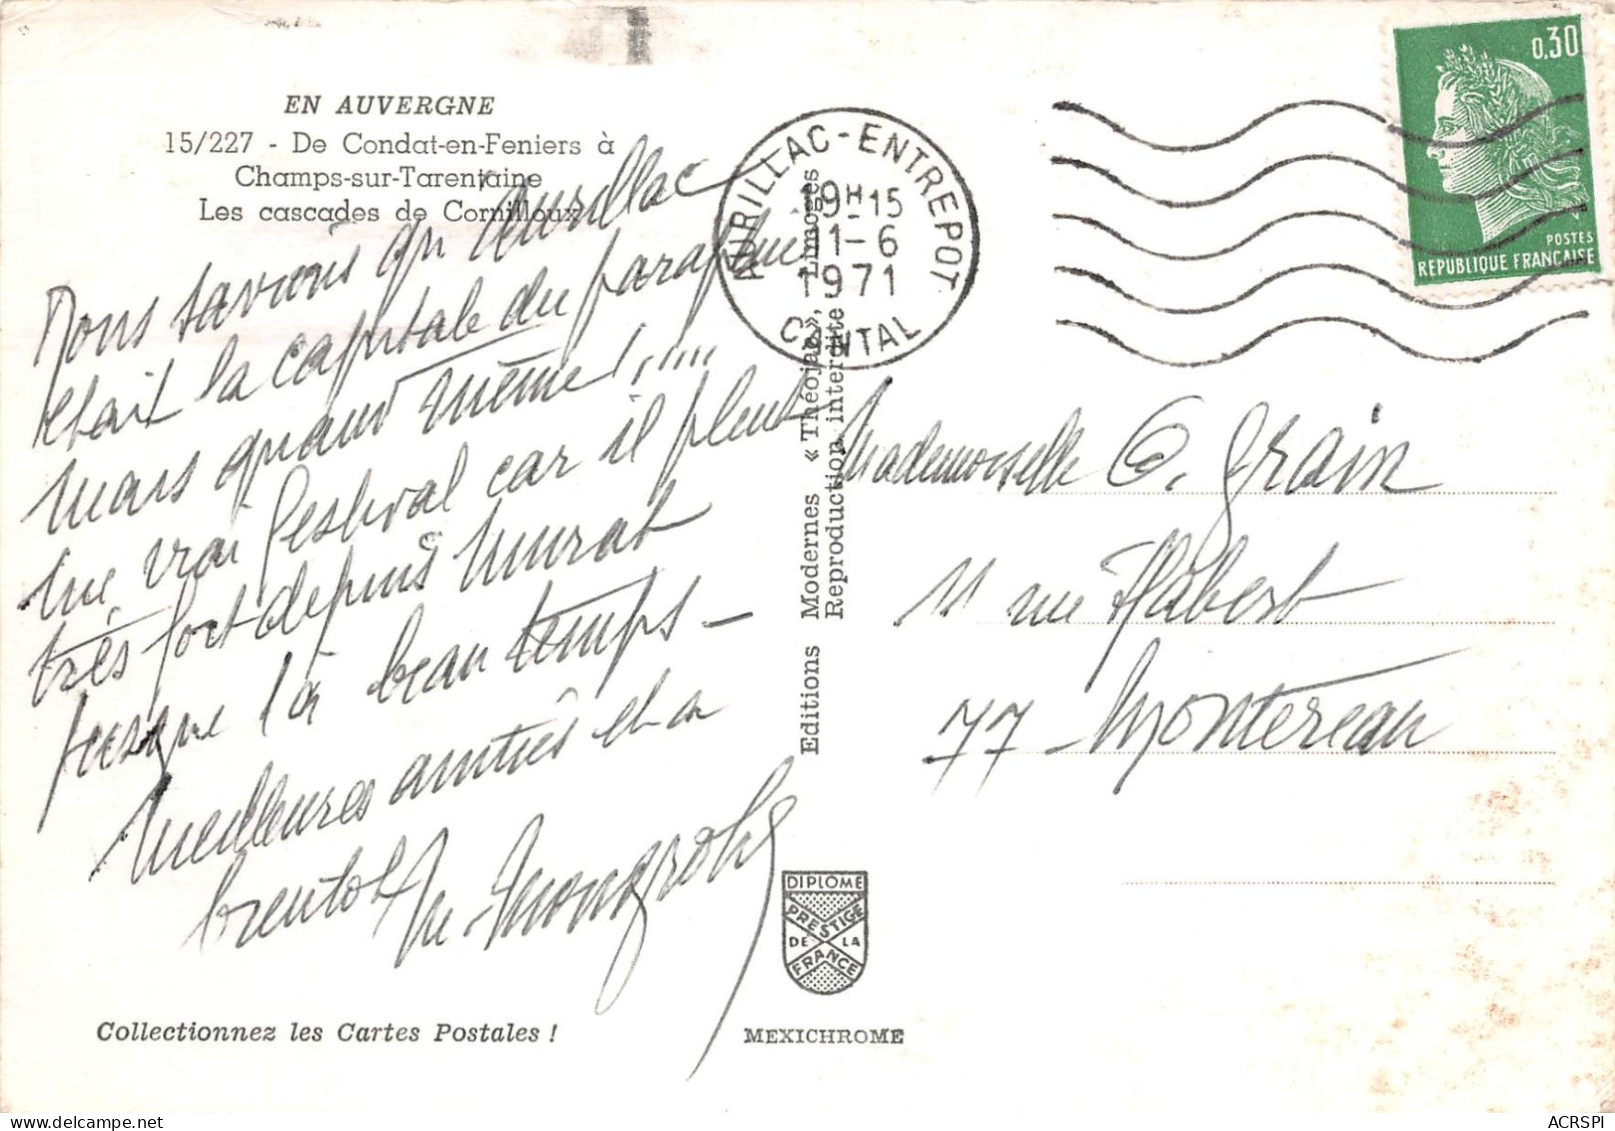 EN AUVERGNE
15/227 - De Condat-en-Feniers à
Champs-sur-Tarentaine
Les cascades de Cornilloux
Nous savions qu'Aurillac
était la capitale du parapluie
mais quand même !.....
une vrai festival car il pleut
très fort depuis Murat
jusque là beau temps -
Meilleures amitiés et à
bientot
Editions Modernes « Théojac », Limoges
Reproduction interdite
AURILLAC-ENTREPOT
19H15
11-6
1971
CANTAL
0,30
POSTES
REPUBLIQUE FRANCAISE
Mademoiselle G. Grain
11 rue Habert
77 Montereau
DIPLOME
PRESTIGE
DE LA
FRANCE
Collectionnez les Cartes Postales !
MEXICHROME
ACRSPI